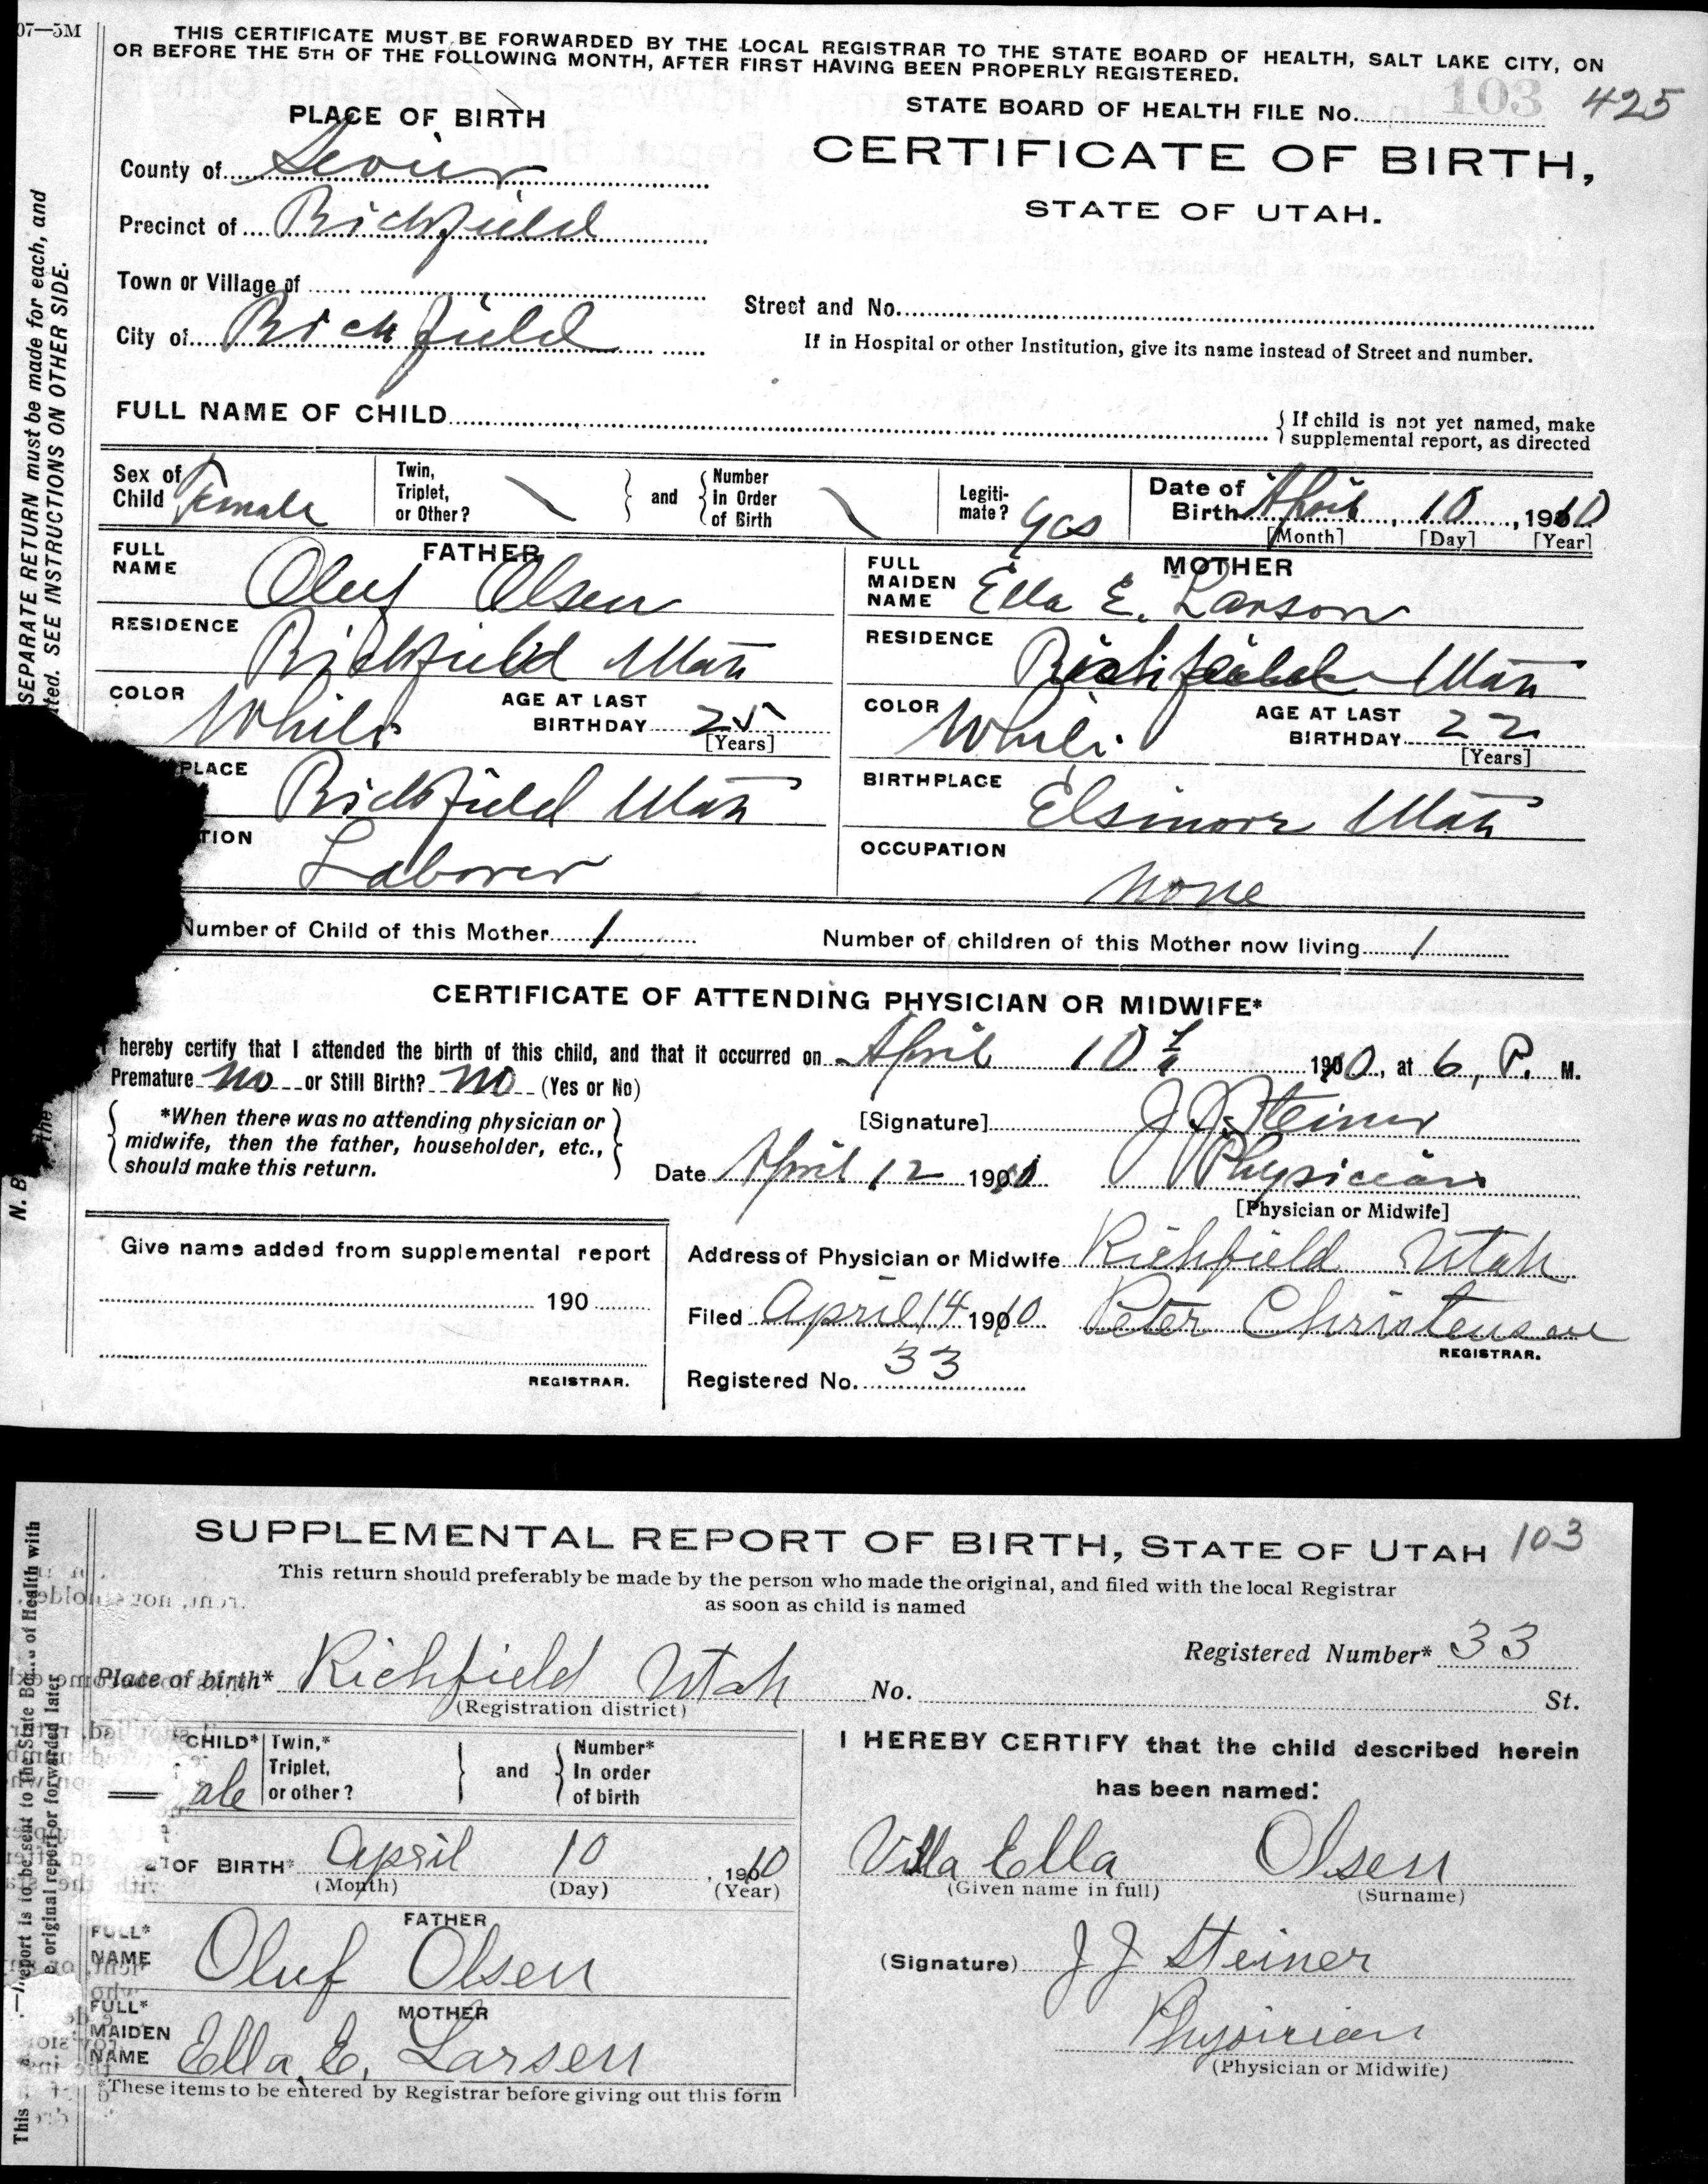 07—5M
THIS CERTIFICATE MUST BE FORWARDED BY THE LOCAL REGISTRAR TO THE STATE BOARD OF HEALTH, SALT LAKE CITY, ON
OR BEFORE THE 5TH OF THE FOLLOWING MONTH, AFTER FIRST HAVING BEEN PROPERLY REGISTERED.
STATE BOARD OF HEALTH FILE No. 103 425
PLACE OF BIRTH
CERTIFICATE OF BIRTH,
STATE OF UTAH.
County of Sevier
Precinct of Richfield
Town or Village of
Street and No.
City of Richfield
If in Hospital or other Institution, give its name instead of Street and number.
FULL NAME OF CHILD
{ If child is not yet named, make
supplemental report, as directed
Sex of Child Female
Twin, Triplet, or Other? \ } and { Number in Order of Birth \
Legiti-mate? yes
Date of Birth April, 10, 1910
[Month] [Day] [Year]
FATHER
FULL NAME Oluf Olsen
RESIDENCE Richfield Utah
COLOR White AGE AT LAST BIRTHDAY 25
[Years]
PLACE Richfield Utah
TION Laborer
MOTHER
FULL MAIDEN NAME Ella E. Larson
RESIDENCE Richfield Utah
COLOR White AGE AT LAST BIRTHDAY 22
[Years]
BIRTHPLACE Elsinore Utah
OCCUPATION None
Number of Child of this Mother 1 Number of children of this Mother now living 1
CERTIFICATE OF ATTENDING PHYSICIAN OR MIDWIFE*
hereby certify that I attended the birth of this child, and that it occurred on April 10 1910, at 6, P. M.
Premature no or Still Birth? no (Yes or No)
{ *When there was no attending physician or
midwife, then the father, householder, etc.,
should make this return. }
[Signature] J J Steiner
Date April 12 1910 Physician
[Physician or Midwife]
Give name added from supplemental report
190
REGISTRAR.
Address of Physician or Midwife Richfield Utah
Filed April 14 1910 Peter Christensen
REGISTRAR.
Registered No. 33
SEPARATE RETURN must be made for each, and
ated. SEE INSTRUCTIONS ON OTHER SIDE.
N. B
the
SUPPLEMENTAL REPORT OF BIRTH, STATE OF UTAH 103
This return should preferably be made by the person who made the original, and filed with the local Registrar
as soon as child is named
Registered Number* 33
Place of birth* Richfield Utah No. St.
(Registration district)
CHILD* ale
Twin,* Triplet, or other? } and { Number* In order of birth
OF BIRTH* April 10, 1910
(Month) (Day) (Year)
FATHER
FULL* NAME Oluf Olsen
MOTHER
FULL* MAIDEN NAME Ella E. Larsen
*These items to be entered by Registrar before giving out this form
I HEREBY CERTIFY that the child described herein
has been named:
Villa Ella Olsen
(Given name in full) (Surname)
(Signature) J J Steiner
Physician
(Physician or Midwife)
This
eport is to be sent to the State Board of Health with
e original report or forwarded later